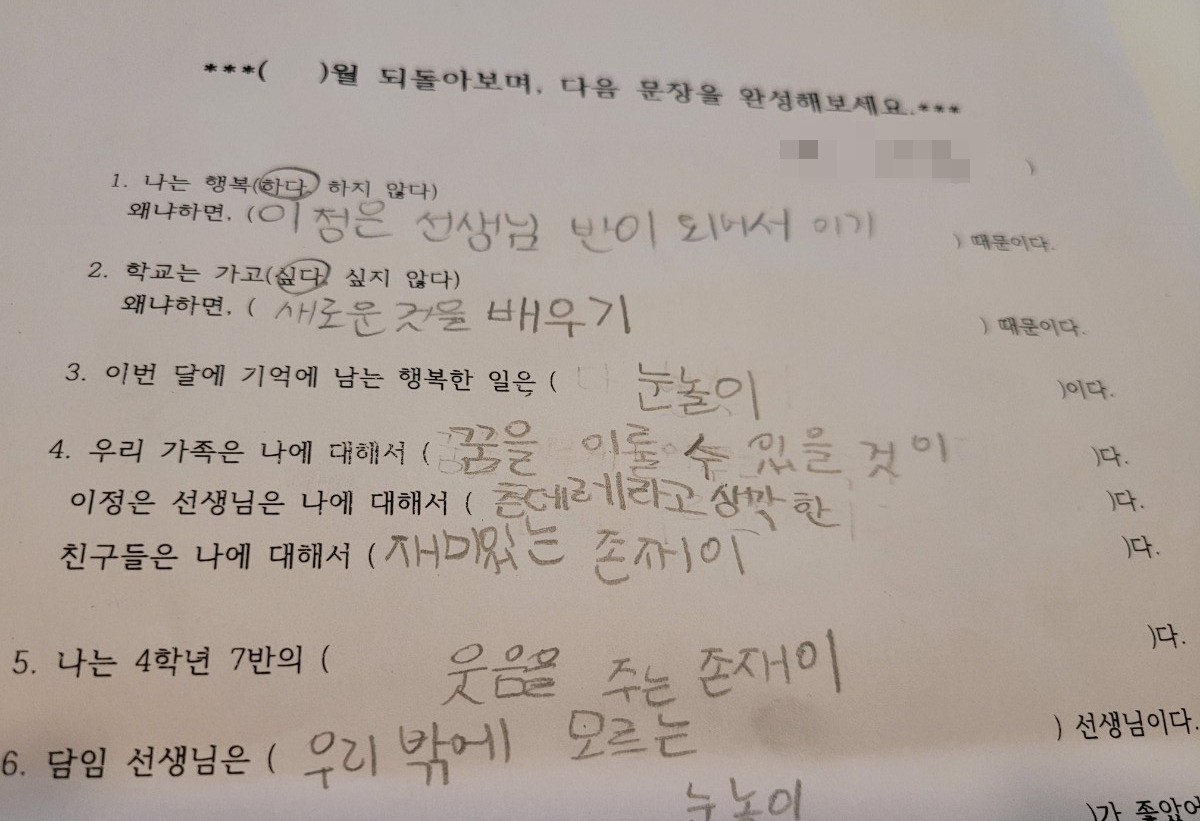 ***( )월 되돌아보며, 다음 문장을 완성해보세요.***
)
1. 나는 행복(하다, 하지 않다)
왜냐하면, (이정은 선생님 반이 되어서 이기 ) 때문이다.
2. 학교는 가고(싶다, 싶지 않다)
왜냐하면, ( 새로운 것을 배우기 ) 때문이다.
3. 이번 달에 기억에 남는 행복한 일은 ( 눈놀이 )이다.
4. 우리 가족은 나에 대해서 ( 꿈을 이룰 수 있을 것이 )다.
이정은 선생님은 나에 대해서 ( 츤데레라고 생각한 )다.
친구들은 나에 대해서 ( 재미있는 존재이 )다.
5. 나는 4학년 7반의 ( 웃음을 주는 존재이 )다.
6. 담임 선생님은 ( 우리 밖에 모르는 ) 선생님이다.
눈놀이 )가 좋았어